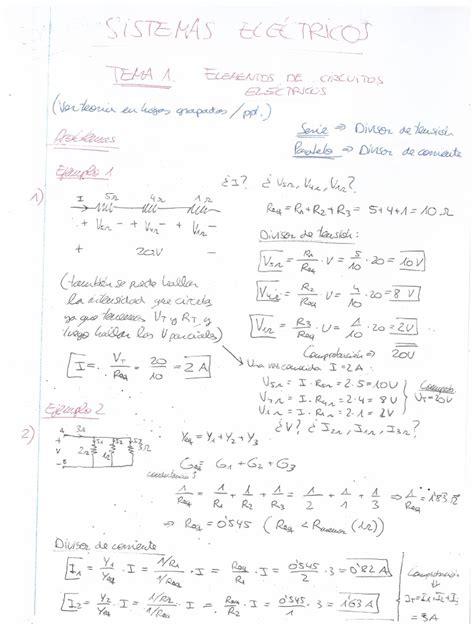 SISTEMAS ELÉCTRICOS
TEMA 1. ELEMENTOS DE CIRCUITOS
ELÉCTRICOS
(Ver teoría en hojas grapadas / ppt.)
Serie ⇒ Divisor de tensión
Paralelo ⇒ Divisor de corriente
Problemas
Ejemplo 1
¿I? ¿V5Ω, V4Ω, V1Ω?
1) I 5Ω 4Ω 1Ω
+ V5Ω - + V4Ω - + V1Ω -
+ 20V -
Req = R1 + R2 + R3 = 5+4+1 = 10 Ω
Divisor de tensión:
V5Ω = R1/Req · V = 5/10 · 20 = 10V
V4Ω = R2/Req · V = 4/10 · 20 = 8 V
V1Ω = R3/Req · V = 1/10 · 20 = 2V
Comprobación ⇒ 20V
(también se puede hallar
la intensidad que circula
ya que tenemos VT y RT y
luego hallar los V parciales)
I = VT/Req = 20/10 = 2 A
Una vez conocida I = 2A:
V5Ω = I · R5Ω = 2·5 = 10V
V4Ω = I · R4Ω = 2·4 = 8V
V1Ω = I · R1Ω = 2·1 = 2V
VT = 20V
Ejemplo 2
¿V? ¿I2Ω, I1Ω, I3Ω?
2) A 3A
+ V - B
2Ω 1Ω 3Ω
Yeq = Y1 + Y2 + Y3
Geq = G1 + G2 + G3
1/Req = 1/R1 + 1/R2 + 1/R3 = 1/2 + 1/1 + 1/3 ⇒ 1/Req = 1'83 Ω
⇒ Req = 0'545 (Req < Rmenor (1Ω))
Divisor de corriente
I1 = Y1/Yeq · I = 1/R1 / 1/Req · I = Req/R1 · I = 0'545/2 · 3 = 0'82 A
I2 = Y2/Yeq · I = 1/R2 / 1/Req · I = Req/R2 · I = 0'545/1 · 3 = 1'63 A
Comprobación
IT = I1 + I2 + I3
= 3A